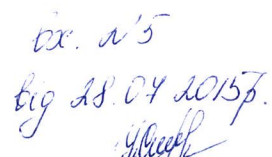 вх. №5
від 28.07 2015р.